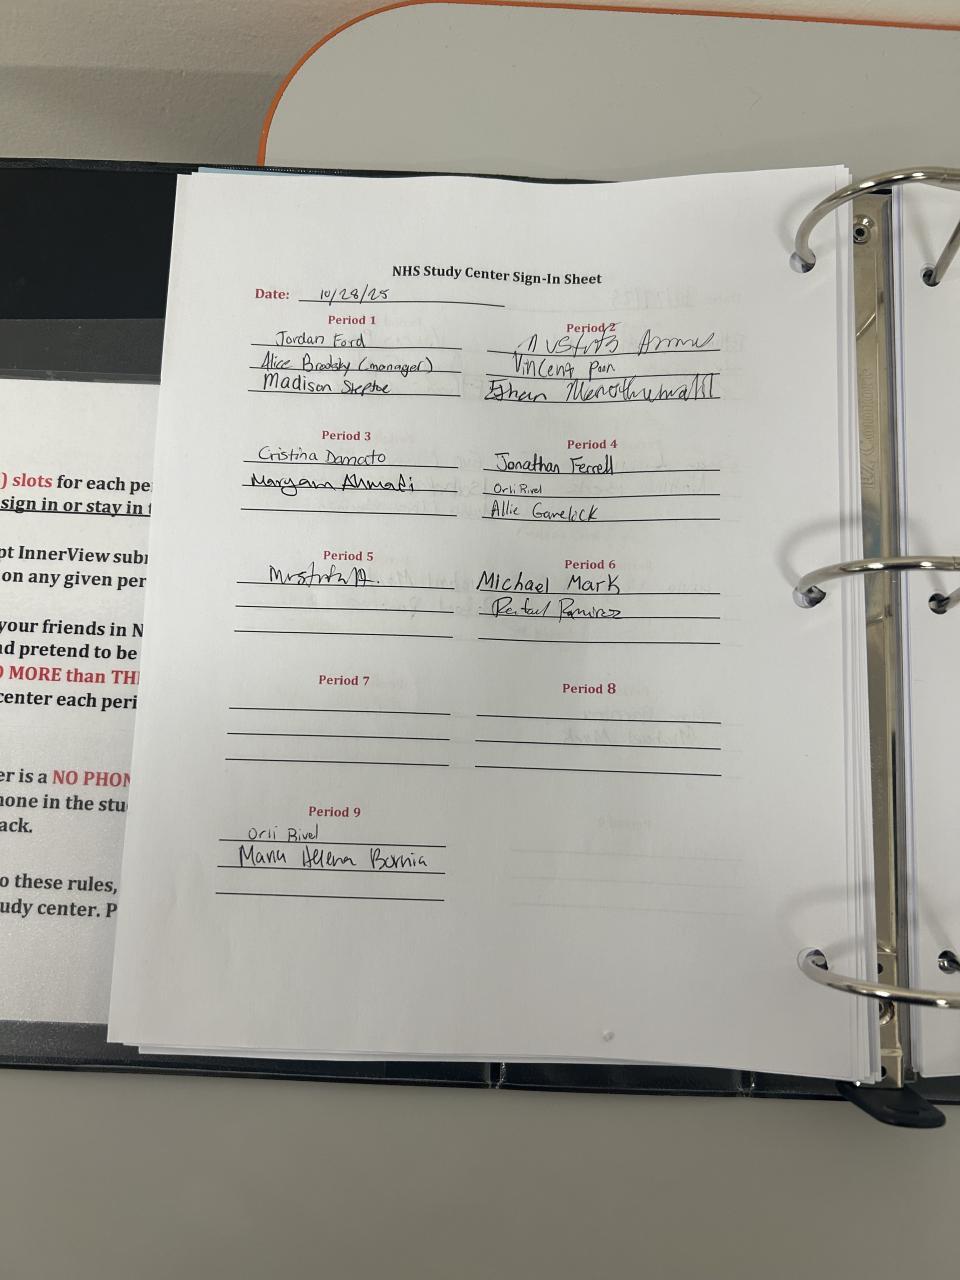 NHS Study Center Sign-In Sheet
Date: 10/28/25
Period 1
Jordan Ford
Alice Brodsky (manager)
Madison Steptoe
Period 2
Vincent Poon
Ethan
Period 3
Cristina Damato
Maryam Ahmadi
Period 4
Jonathan Ferrell
Orli Rivel
Allie Gavelick
Period 5
Period 6
Michael Mark
Rafael Ramirez
Period 7
Period 8
Period 9
Orli Rivel
Maria Helena Bornia
) slots for each pe
sign in or stay in
pt InnerView subm
on any given per
your friends in N
nd pretend to be
O MORE than TH
center each peri
er is a NO PHON
hone in the stu
ack.
o these rules,
udy center. P